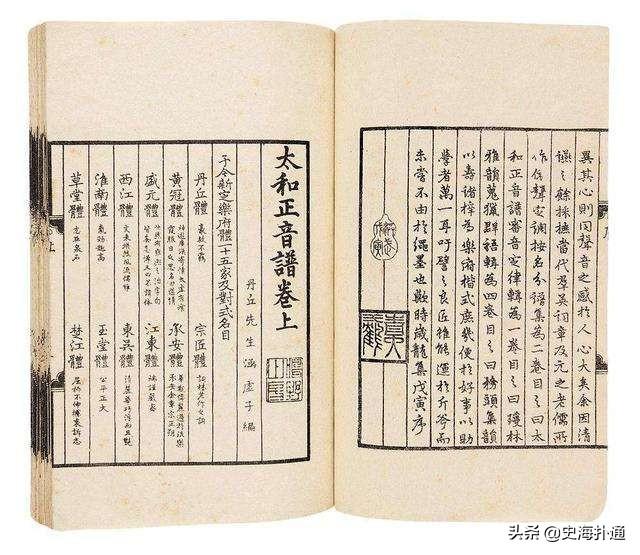 異其心則同聲音之感於人心大矣余因清
讌之餘採摭當代群英詞章及元之老儒所
作依聲定調按名分譜集為二卷目之曰太
和正音譜審音定律輯為一卷目之曰瓊林
雅韻蒐獵群語輯為四卷目之曰務頭集韻
以壽諸梓為樂府楷式庶幾便於好事以助
學者萬一耳吁譬之良匠雖能運於斤斧而
未嘗不由於繩墨也歟時歲龍集戊寅序
太和正音譜卷上
丹丘先生涵虛子編
予今新定樂府體一十五家及對式名目
丹丘體 豪放不羈 宗匠體 詞林老作之詞
黃冠體 神遊廣漠寄情太虛有餐霞服日之思名曰道情 承安體 華觀偉麗過於泆樂承安金章宗正朔
盛元體 快然有雍熙之治字句皆無忌憚又曰不諱體 江東體 端謹嚴密
西江體 文采煥然風流儒雅 東吳體 清麗華巧浮而且艷
淮南體 氣勁趣高 玉堂體 公平正大
草堂體 志在泉石 楚江體 屈抑不伸攄衷訴志
头条 @史海扑通